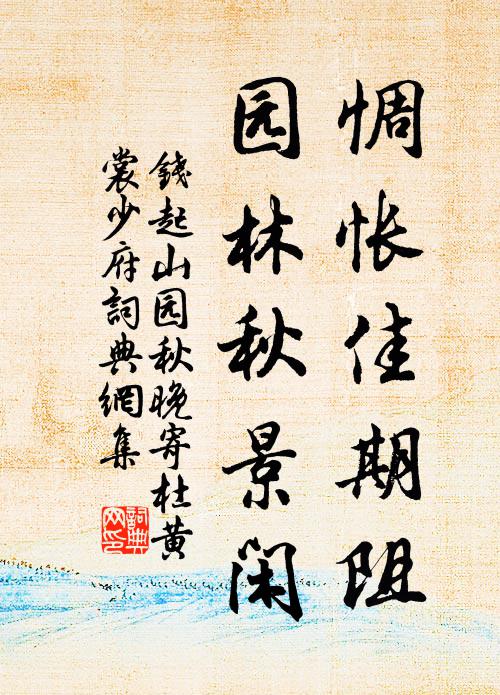 惆怅佳期阻
园林秋景闲
錢起山园秋晚寄杜黄
裳少府詞典網集
詞典
网印